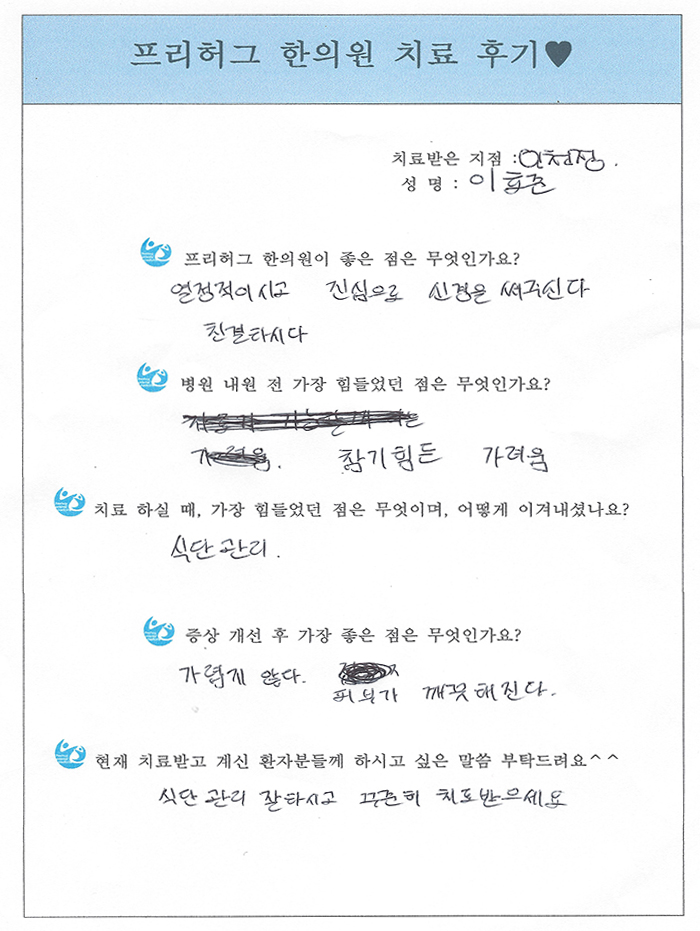 프리허그 한의원 치료 후기♥
치료받은 지점 : 인천점.
성 명 : 이효준
프리허그 한의원이 좋은 점은 무엇인가요?
열정적이시고 진심으로 신경을 써주신다
친절하시다
병원 내원 전 가장 힘들었던 점은 무엇인가요?
참기힘든 가려움
치료 하실 때, 가장 힘들었던 점은 무엇이며, 어떻게 이겨내셨나요?
식단관리.
증상 개선 후 가장 좋은 점은 무엇인가요?
가렵지 않다.
피부가 깨끗해진다.
현재 치료받고 계신 환자분들께 하시고 싶은 말씀 부탁드려요^^
식단관리 잘하시고 꾸준히 치료받으세요